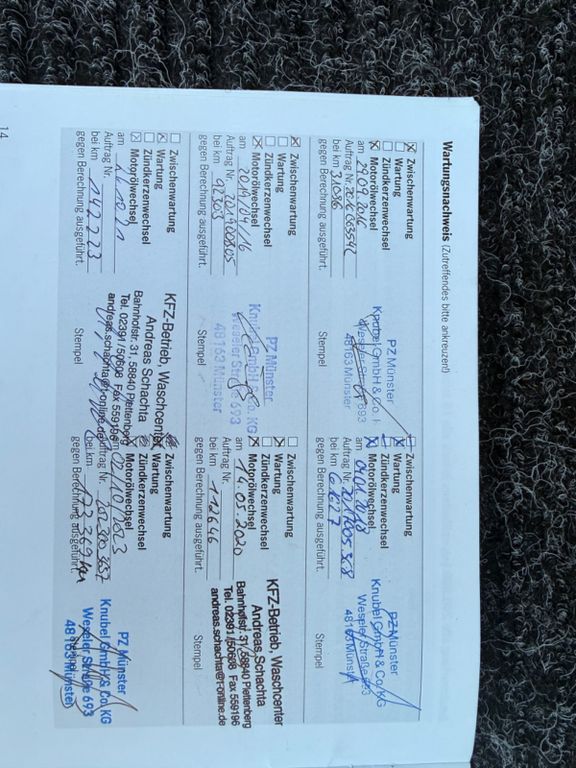 Wartungsnachweis (Zutreffendes bitte ankreuzen!)
Zwischenwartung
Wartung
Zündkerzenwechsel
Motorölwechsel
am 29.09.2016
Auftrag Nr.
bei km 31086
gegen Berechnung ausgeführt.
PZ Münster
Knubel GmbH & Co.
Weseler Straße 693
48163 Münster
Stempel
Zwischenwartung
Wartung
Zündkerzenwechsel
Motorölwechsel
am
Auftrag Nr.
bei km 61627
gegen Berechnung ausgeführt.
PZ Münster
Knubel GmbH & Co. KG
Weseler Straße 693
48163 Münster
Stempel
Zwischenwartung
Wartung
Zündkerzenwechsel
Motorölwechsel
am 2019/04/16
Auftrag Nr.
bei km 92303
gegen Berechnung ausgeführt.
PZ Münster
Knubel GmbH & Co. KG
Weseler Straße 693
48163 Münster
Stempel
Zwischenwartung
Wartung
Zündkerzenwechsel
Motorölwechsel
am 14.05.2020
Auftrag Nr.
bei km 112646
gegen Berechnung ausgeführt.
KFZ-Betrieb, Waschcenter
Andreas Schachta
Bahnhofstr. 31, 58840 Plettenberg
Tel. 02391/50608 Fax 559196
andreas.schachta@t-online.de
Stempel
Zwischenwartung
Wartung
Zündkerzenwechsel
Motorölwechsel
am
Auftrag Nr.
bei km 142223
gegen Berechnung ausgeführt.
KFZ-Betrieb, Waschcenter
Andreas Schachta
Bahnhofstr. 31, 58840 Plettenberg
Tel. 02391/50608 Fax 559196
andreas.schachta@t-online.de
Stempel
Zwischenwartung
Wartung
Zündkerzenwechsel
Motorölwechsel
am
Auftrag Nr.
bei km
gegen Berechnung ausgeführt.
PZ Münster
Knubel GmbH & Co. KG
Weseler Straße 693
48163 Münster
Stempel
14